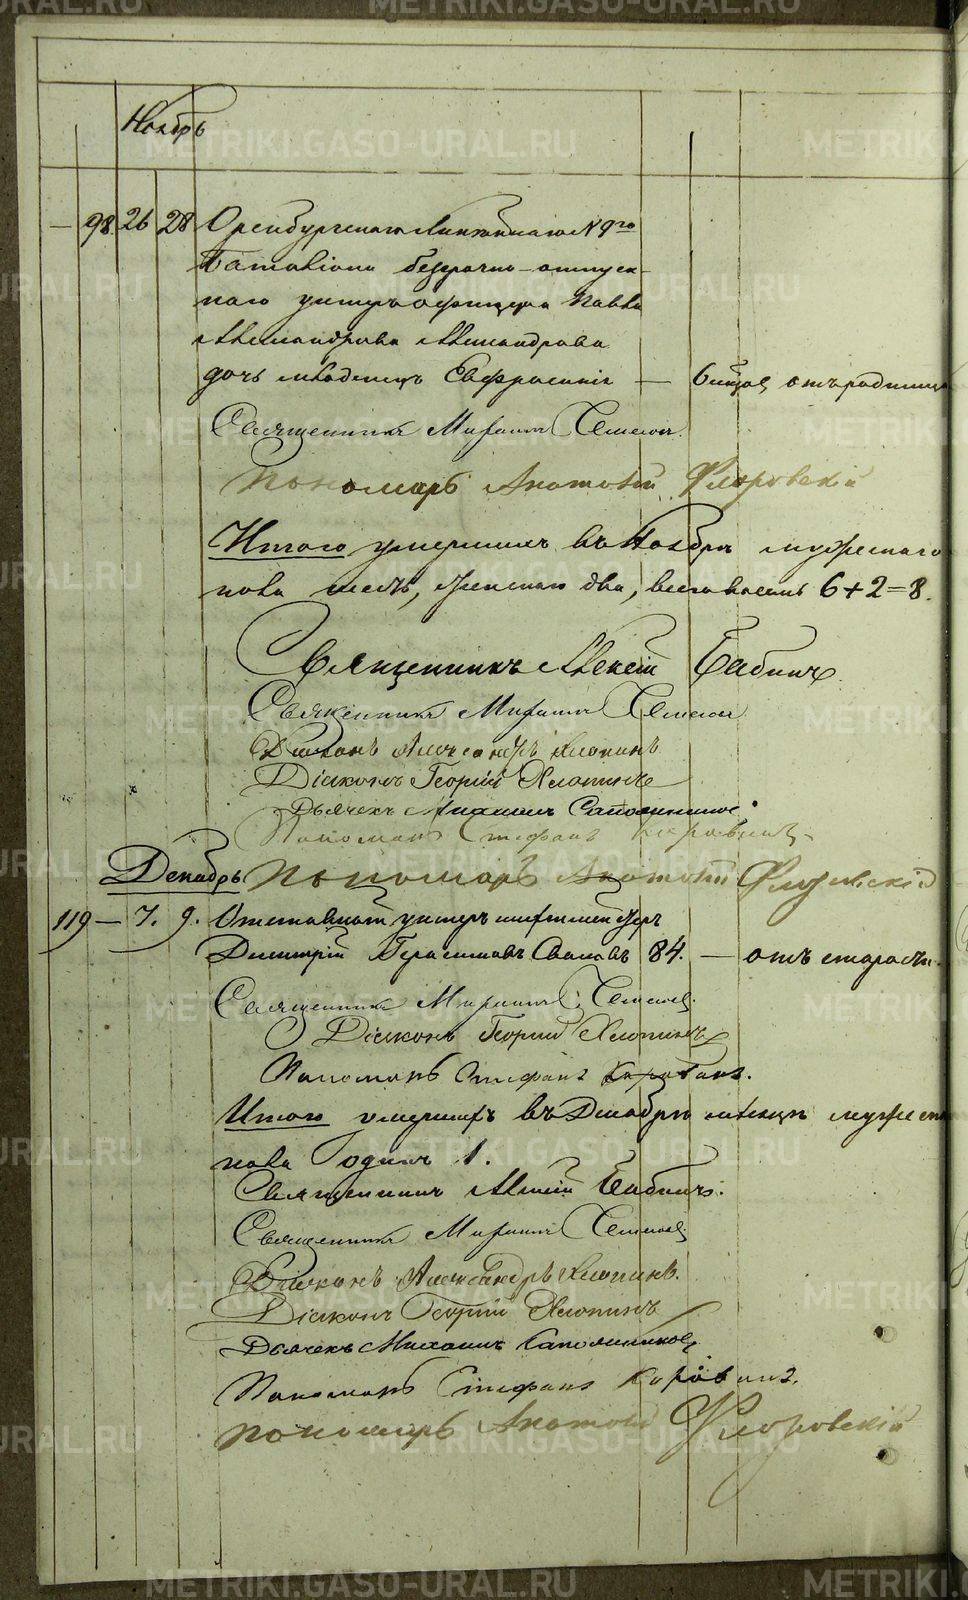 Ноябрь
— 98. 26 28 Оренбургскаго Линѣйнаго № 9го
баталіона безсрочно-отпуск-
наго унтеръ-офицера Павла
Александрова Александрова
дочь младенецъ Евфросинія — 6 мѣсяц. отъ родимца
Священникъ Михаилъ
Пономарь Анатолій Флоровскій
Итого умершихъ въ Ноябрѣ мужескаго
пола шесть, женскаго два, всего восемь 6+2=8.
Священникъ Алексій Бабинъ.
Священникъ Михаилъ
Діаконъ Александръ Хлопинъ
Діаконъ Георгій Хлопинъ
Дьячекъ Михаилъ Сапожниковъ
Пономарь Стефанъ
Декабрь Пономарь Анатолій Флоровскій
119 — 7. 9. Отставной унтеръ шихтмейстеръ
Димитрій Герасимовъ 84. — отъ старости.
Священникъ Михаилъ
Діаконъ Георгій Хлопинъ
Пономарь Стефанъ
Итого умершихъ въ Декабрѣ мѣсяцѣ мужеск
пола одинъ 1.
Священникъ Алексій Бабинъ.
Священникъ Михаилъ
Діаконъ Александръ Хлопинъ.
Діаконъ Георгій Хлопинъ
Дьячекъ Михаилъ Сапожниковъ
Пономарь Стефанъ
Пономарь Анатолій Флоровскій
METRIKI.GASO-URAL.RU